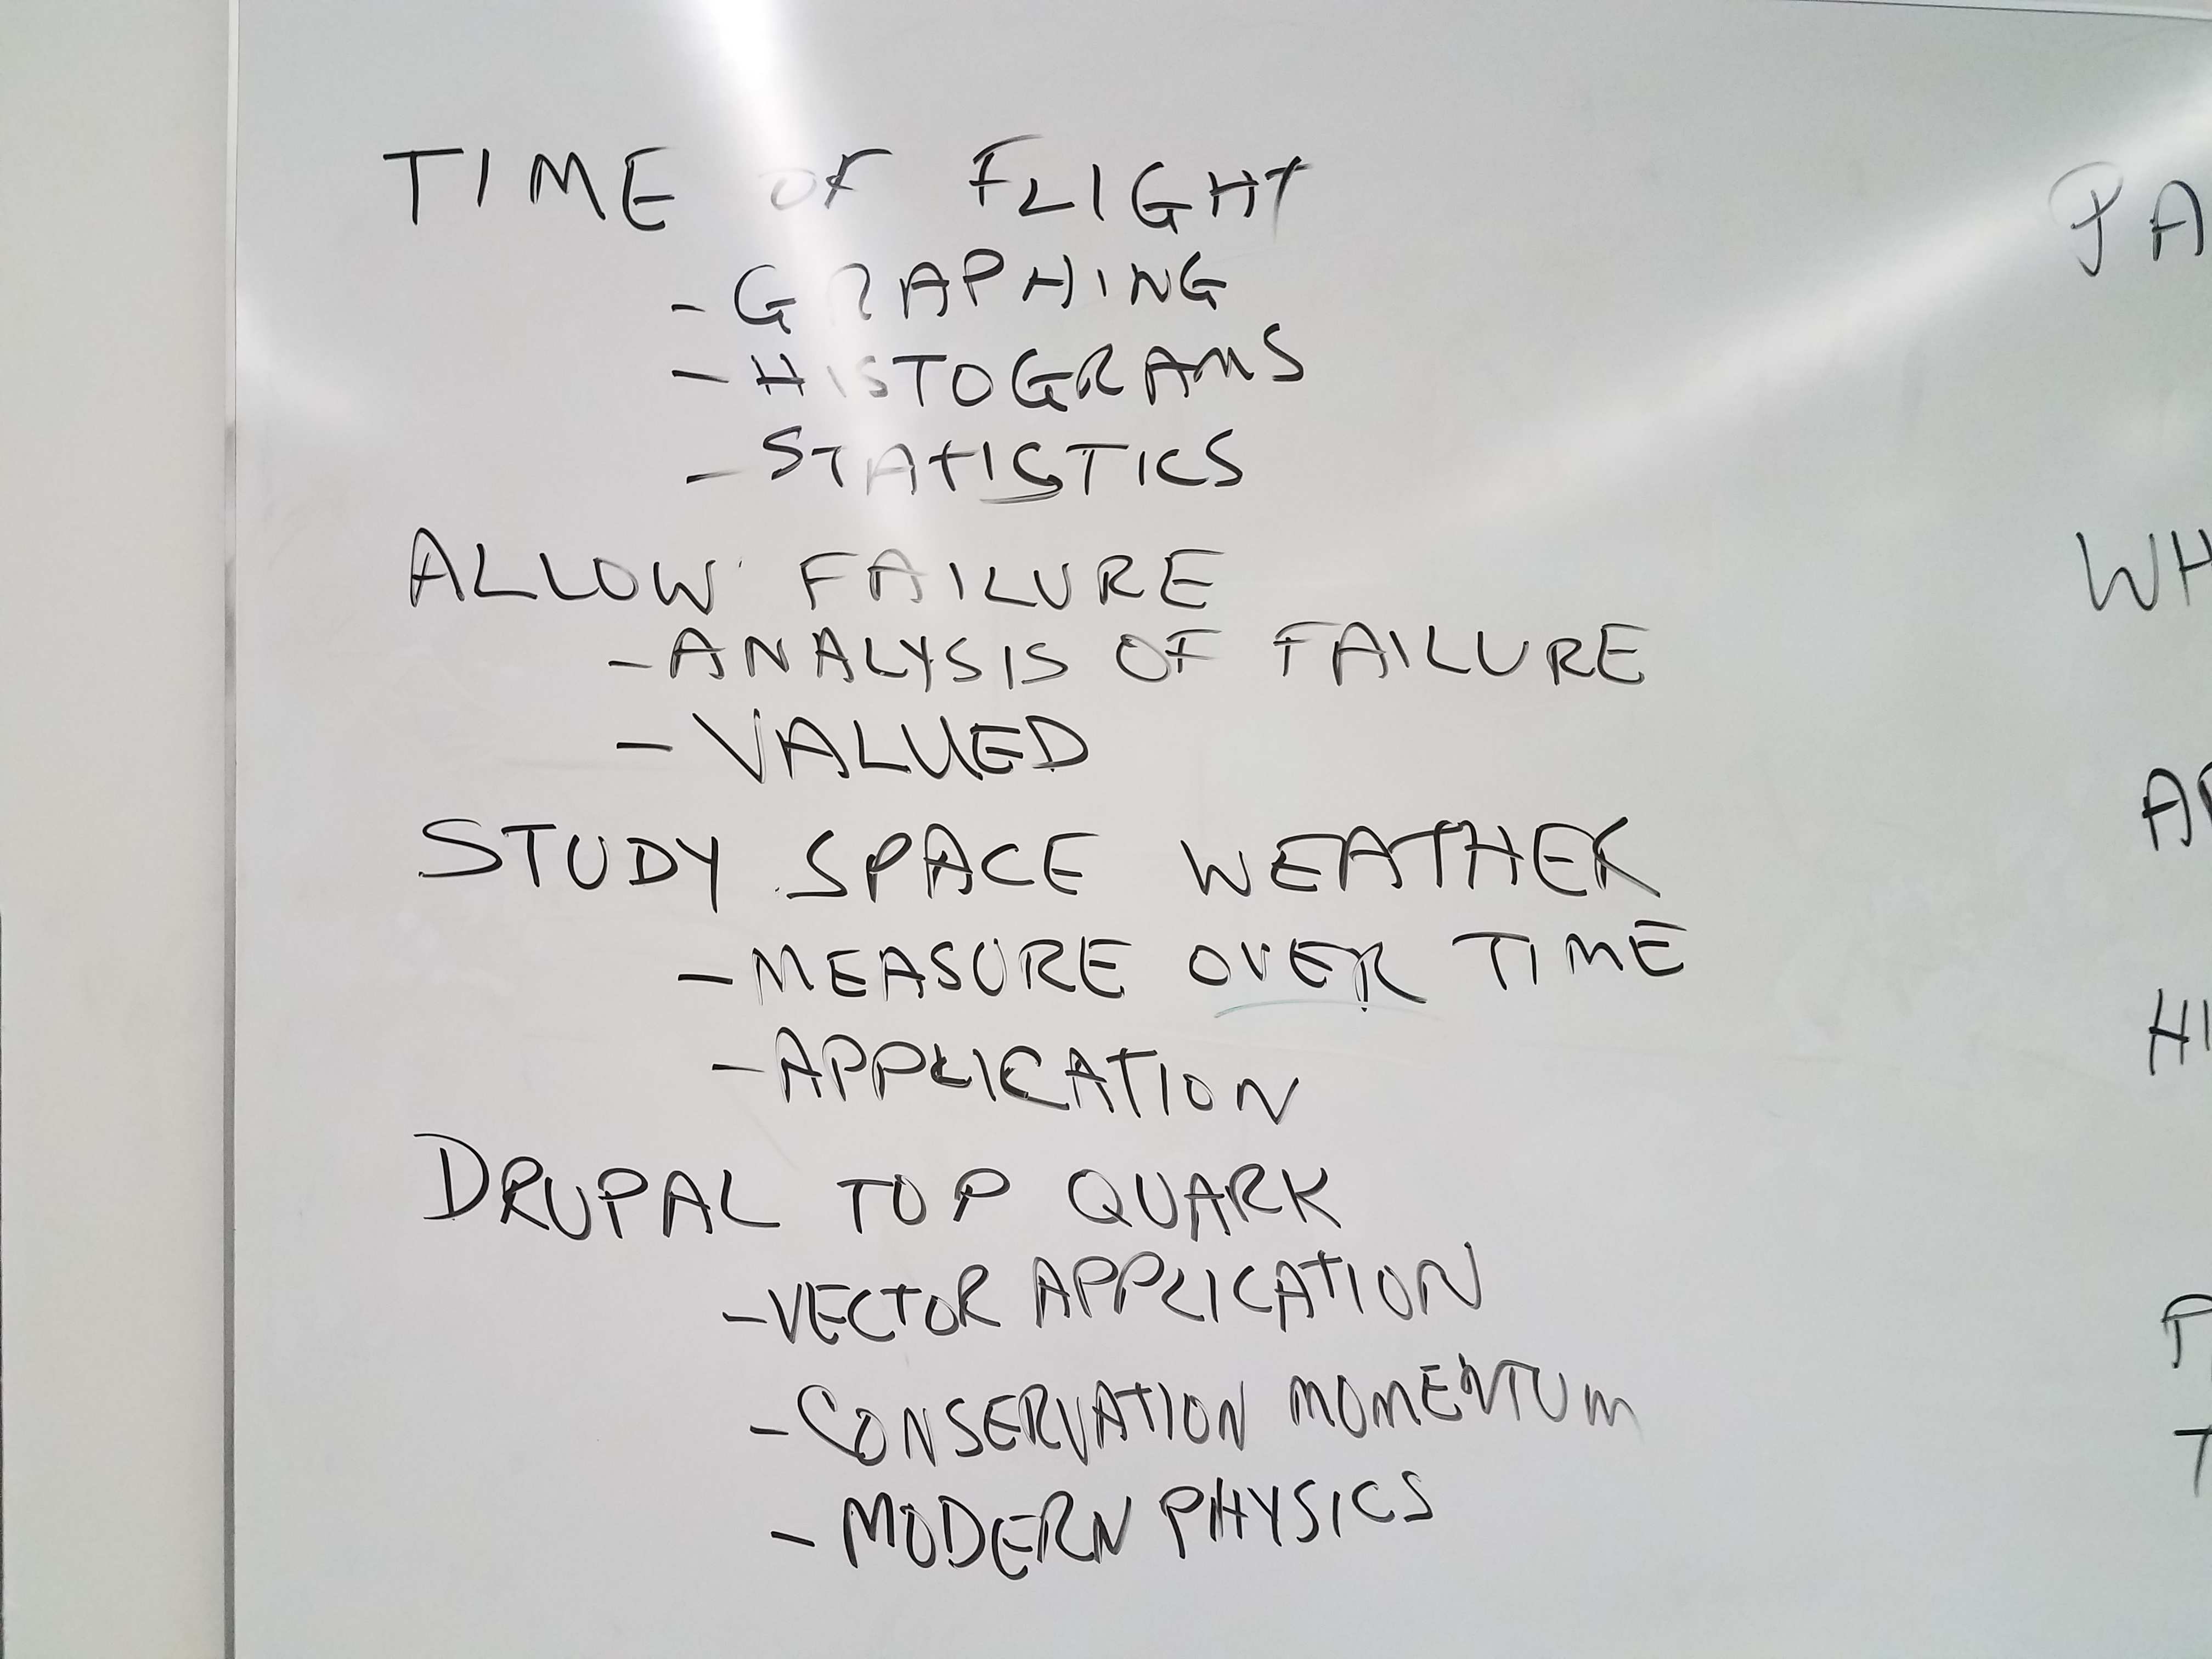 TIME OF FLIGHT
- GRAPHING
- HISTOGRAMS
- STATISTICS
ALLOW FAILURE
- ANALYSIS OF FAILURE
- VALUED
STUDY SPACE WEATHER
- MEASURE OVER TIME
- APPLICATION
DRUPAL TOP QUARK
- VECTOR APPLICATION
- CONSERVATION MOMENTUM
- MODERN PHYSICS